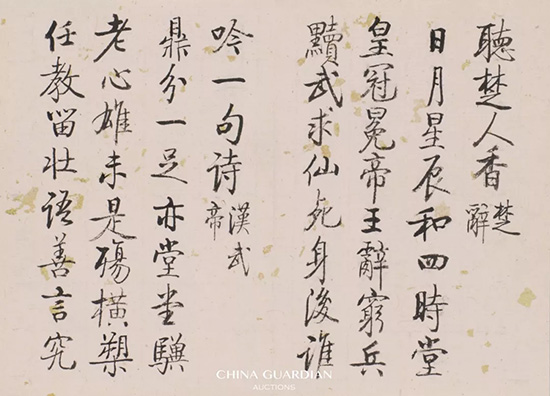 聽楚人香 楚辭
日月星辰和四時堂
皇冠冕帝王辭窮兵
黷武求仙死身後誰
吟一句詩 漢武帝
鼎分一足亦堂堂驥
老心雄未是殤橫槊
任教留壯語善言究
CHINA GUARDIAN
AUCTIONS